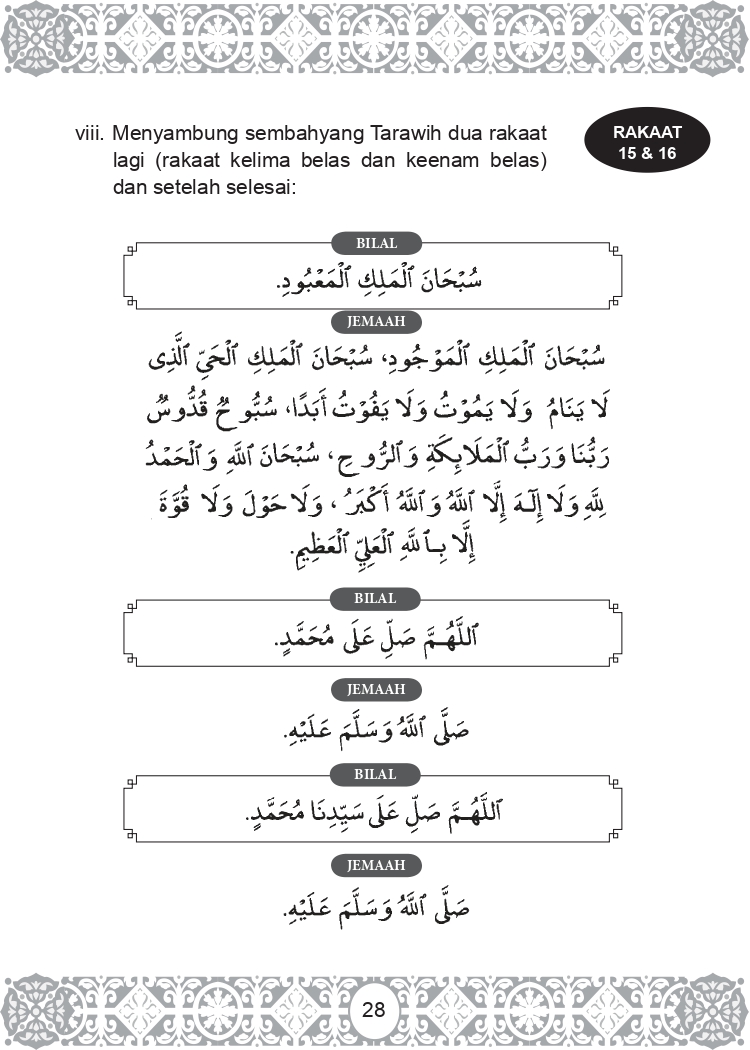 viii. Menyambung sembahyang Tarawih dua rakaat
lagi (rakaat kelima belas dan keenam belas)
dan setelah selesai:
RAKAAT
15 & 16
BILAL
سُبْحَانَ ٱلْمَلِكِ ٱلْمَعْبُودِ.
JEMAAH
سُبْحَانَ ٱلْمَلِكِ ٱلْمَوْجُودِ، سُبْحَانَ ٱلْمَلِكِ ٱلْحَيِّ ٱلَّذِى
لَا يَنَامُ وَلَا يَمُوْتُ وَلَا يَفُوْتُ أَبَدًا، سُبُّوحٌ قُدُّوسٌ
رَبُّنَا وَرَبُّ ٱلْمَلَائِكَةِ وَٱلرُّوحِ، سُبْحَانَ ٱللَّهِ وَٱلْحَمْدُ
لِلَّهِ وَلَا إِلَـهَ إِلَّا ٱللَّهُ وَٱللَّهُ أَكْبَرُ، وَلَا حَوْلَ وَلَا قُوَّةَ
إِلَّا بِٱللَّهِ ٱلْعَلِيِّ ٱلْعَظِيمِ.
BILAL
ٱللَّهُـمَّ صَلِّ عَلَى مُحَمَّدٍ.
JEMAAH
صَلَّى ٱللَّهُ وَسَلَّمَ عَلَيْهِ.
BILAL
ٱللَّهُـمَّ صَلِّ عَلَى سَيِّدِنَا مُحَمَّدٍ.
JEMAAH
صَلَّى ٱللَّهُ وَسَلَّمَ عَلَيْهِ.
28